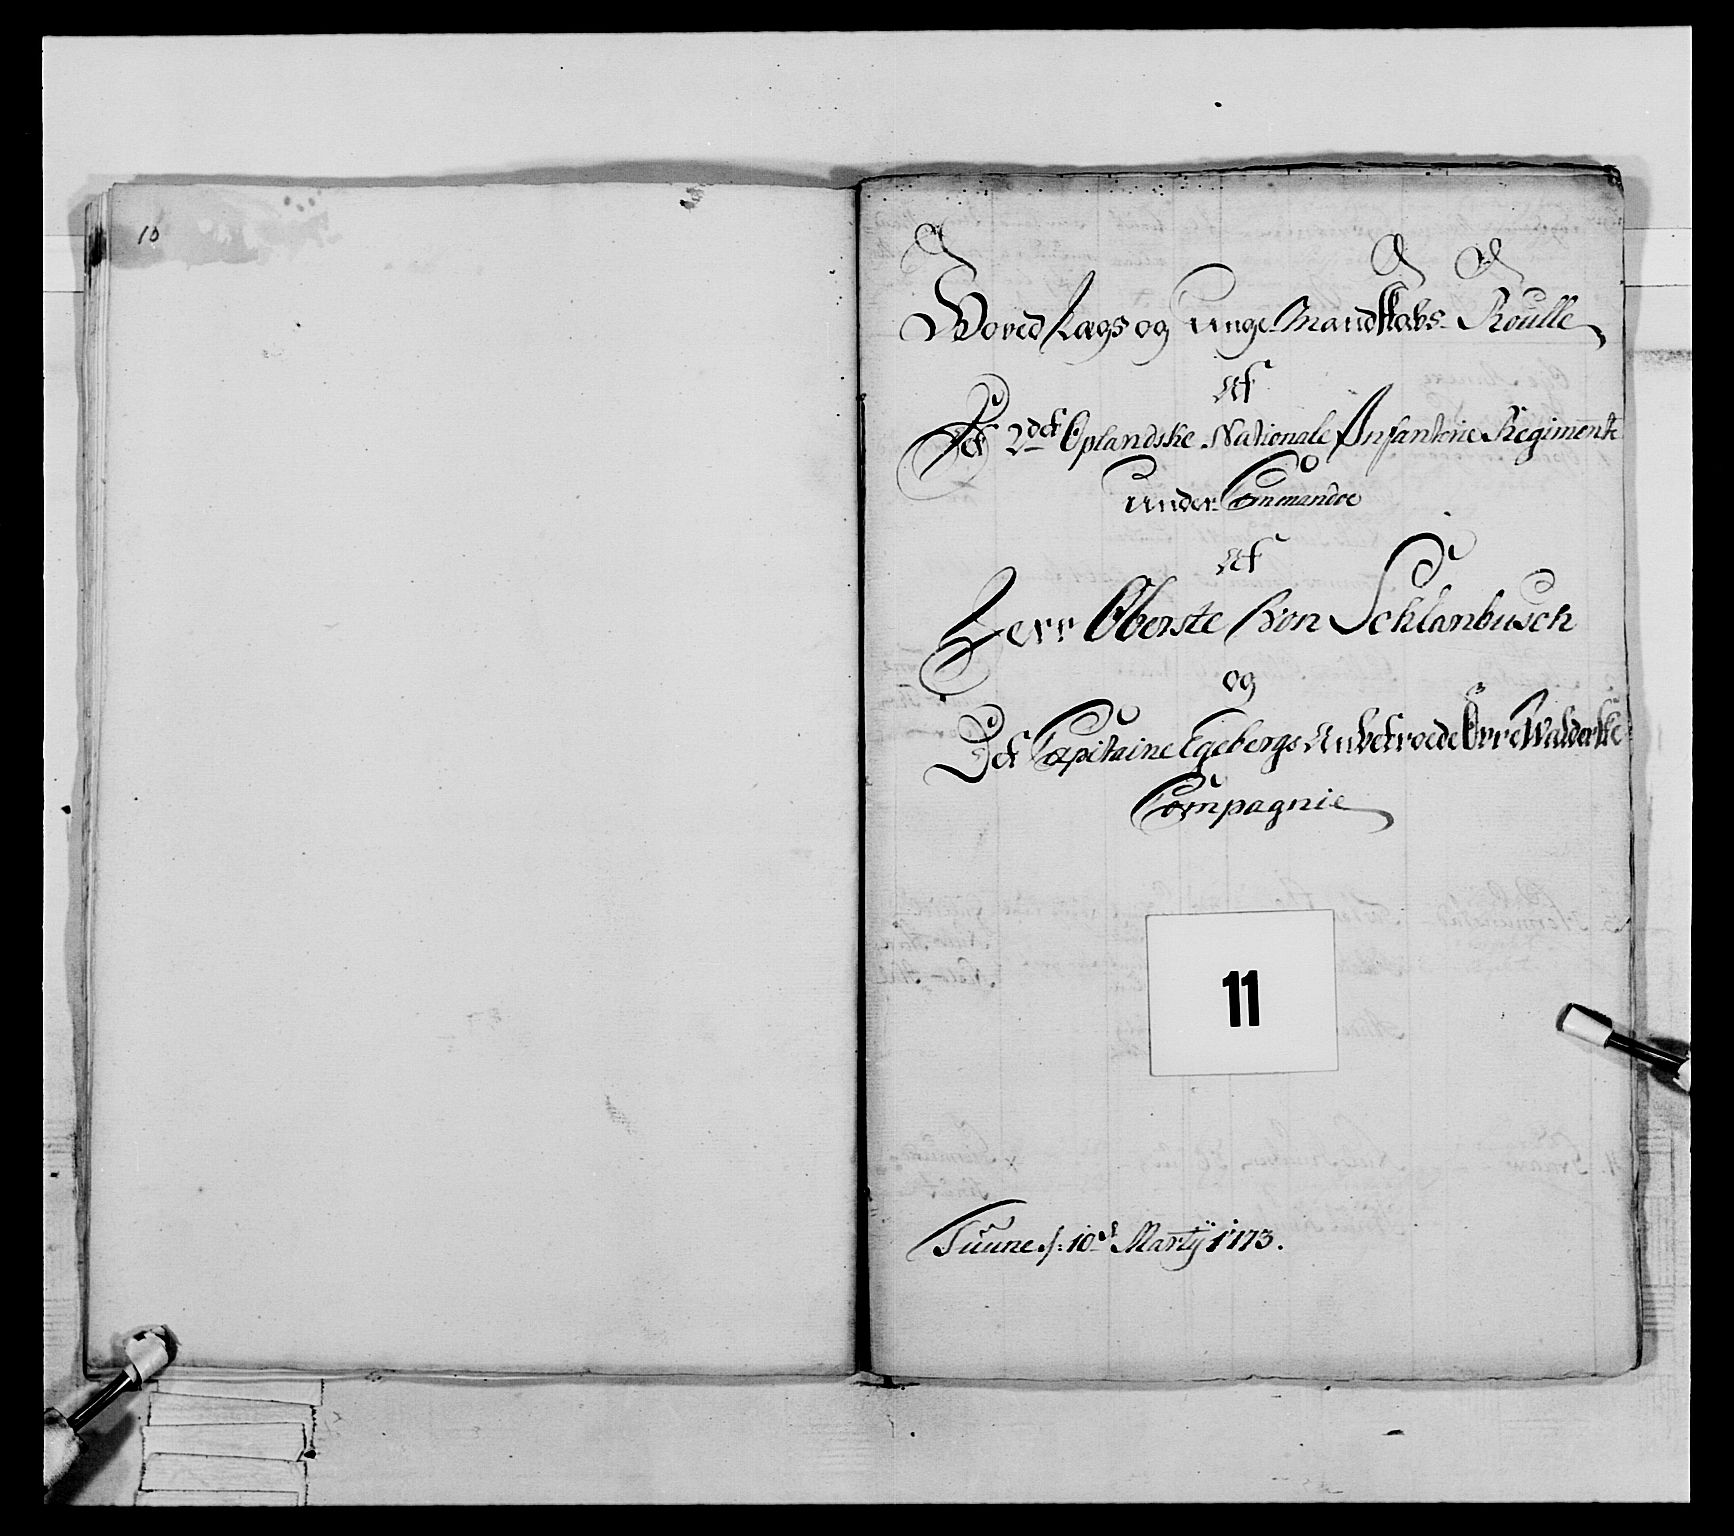 10
Hoved Lægs og Unge Mandskabs Roulle
Af
Det 2det Oplandske Nationale Infanterie Regimente
Under Commandoe
Af
Herr Oberste Von Schlanbusch
og
Det Capitaine Egebergs Anbetroede Øvre Walderske
Compagnie
11
Tuune d: 10d Martÿ 1773.